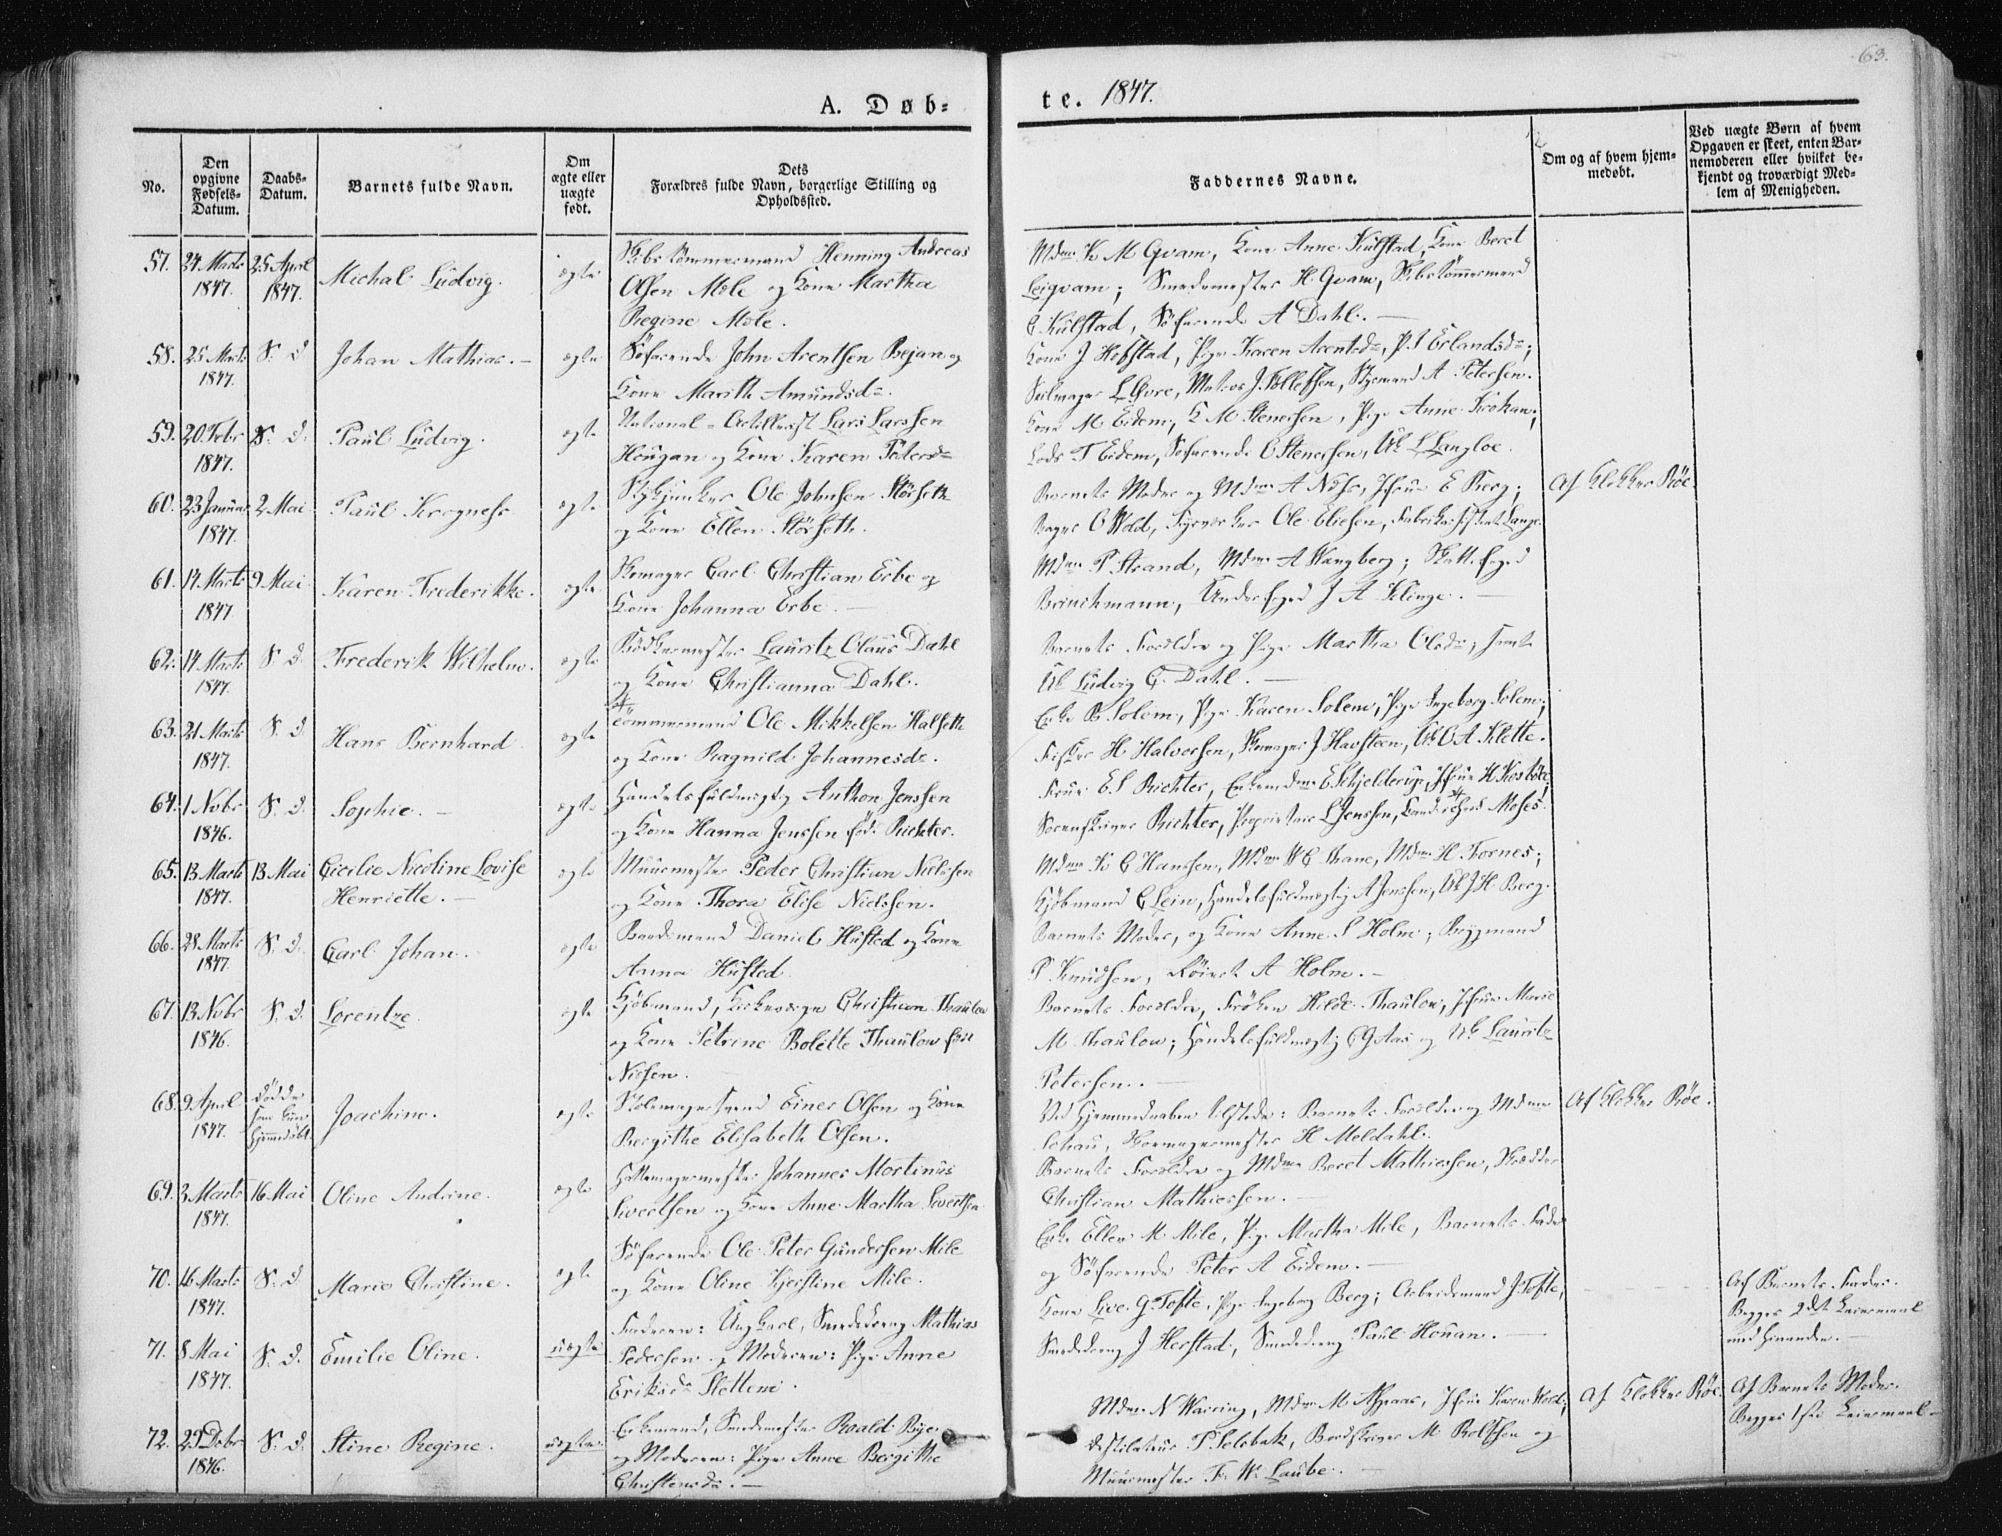 63.
A. Døb=
te. 1847.
No.
Den opgivne Fødsels=Datum.
Daabs=Datum.
Barnets fulde Navn.
Om ægte eller uægte født.
Dets Forældres fulde Navn, borgerlige Stilling og Opholdssted.
Faddernes Navne.
Om og af hvem hjem=medøbt.
Ved uægte Børn af hvem Opgaven er skeet, enten Bar=nemoderen eller hvilket be=kjendt og troværdigt Med=lem af Menigheden.
57. 24 Marts 1847. 25 April 1847. Michal Ludvig. ægte
Skibstømmermand Henning Andreas
Olsen Mole og Kone Martha
Regine Mole.
Mdme K M Qvam, Kone Anne Kulstad, Kone Beret
Leiqvam; Smedemester H. Qvam, Skibstømmermand
Kulstad, Søfarende A Dahl.
58. 25 Marts 1847. S. d. Johan Mathias. ægte
Søfarende John Arentsen Bejan og
Kone Marith Amundsd.
Kone J Hofstad, Pige Karen Arentsd, P. J Erlandsd;
Seilmager L Øvre, Matros J. Tollefsen, Styrmand A Petersen.
59. 20 Febr 1847. S. d. Paul Ludvig. ægte
National=Artillerist Lars Larssen
Hougan og Kone Karen Petersd
Kone M Eidem, K M Stenersen, Pige Anne Krokan;
Lods T Eidem, Søfarende O Stenersen, Uk L Langloe.
60. 23 Januar 1847. 2 Mai Paul Krogness ægte
Ole Johnsen Störseth
og Kone Ellen Störseth.
Barnets Moder og Mdme A Næss, Jfrue E Berg;
Bager O Wold, Ole Eliesen,
Af Klokker Röe.
61. 17 Marts 1847 9 Mai Karen Frederikke. ægte
Skomager Carl Christian Erbe og
Kone Johanna Erbe.
Mdme P Strand, Mdme A Wangberg; Skattefoged
Brinchmann, Underfoged J A Klinge.
62. 14 Marts 1847. S. d. Frederik Wilhelm. ægte
Bödkermester Lauritz Olaus Dahl
og Kone Christianna Dahl.
Barnets Forældre og Pige Martha Olsd; samt
Uk Ludvig G. Dahl.
63. 21 Marts 1847. S. d Hans Bernhard ægte
Tömmermand Ole Mikkelsen Halseth
og Kone Ragnild Johannesd.
Enke B Solem, Pige Karen Solem, Pige Ingeborg Solem;
Fisker H Halvorsen, Skomager J Havsteen, Uk O A Klette.
64. 1 Novbr 1846. S. d. Sophie. ægte
Handelsfuldmægtig Anthon Jenssen
og Kone Hanna Jenssen föd. Richter.
Frue E S Richter, Enkemdme E Schjelderup, Jfrue H
Sorenskriver Richter, Proprietair L Jenssen, Moses.
65. 13 Marts 1847. 13 Mai Cicilie Nicoline Lovise Henriette. ægte
Muurmester Peder Christian Nielssen
og Kone Thora Elise Nielssen.
Mdme K C Hanssen, Mdme W E Thane, Mdme H Fornes;
Kjöbmand C Lein, Handelsfuldmægtig A Jenssen, Uk J H Berg.
66. 28 Marts 1847 S. d. Carl Johan. ægte
Daniel Husted og Kone
Anna Husted.
Barnets Moder, og Kone Anne S Holm; Brygmand
P. Knudsen, A Holm.
67. 13 Novbr 1846. S. d. Lorentze ægte
Kjöbmand, Kirkeværge Christian Thaulow
og Kone Petrine Bolette Thaulow föd
Nissen.
Barnets Forældre, Fröken Hilde Thaulow, Jfrue Marie
M Thaulow; Handelsfuldmægtig og Uk Lauritz
Petersen.
68. 9 April 1847. dödde som hjemmedöbt. Joachim. ægte
Stolemagersvend Einer Olsen og Kone
Bergithe Elisabeth Olsen.
Ved Hjemmedaaben tilstede: Barnets Forældre og Mdme
Schau, Skomagermester H Moldahl.
Af Klokker Röe.
69. 3 Marts 1847. 16 Mai Oline Andrine. ægte
Hattemagermester Johannes Martinus
Sivertsen og Kone Anne Martha Sivertsen.
Barnets Forældre og Mdme Beret Mathiessen, Skrædder
Christian Mathiessen.
70. 16 Marts 1847. S. d. Marie Christine. ægte
Söfarende Ole Peter Gundersen Mile
og Kone Oline Kjerstine Mile.
Enke Ellen M Mile, Pige Martha Mile, Barnets Fader
og Söfarende Peter A Eidem.
71. 8 Mai 1847. S. d. Emilie Oline. uægte
Faderen: Ungkarl, Smededreng Mathias
Pedersen og Moderen: Pige Anne
Eriksd Slettem.
Kone Live G Tofte, Pige Ingeborg Berg; Arbeidsmand J. Tofte,
Smededreng J Herstad, Smededreng Paul Houan.
Af Barnets Fader.
Begges 2det Leiermaal
med hinanden.
72. 25 Debr 1846. S. d. Stine Regine. uægte
Enkemand, Smedemester Roald Bye
og Moderen: Pige Anne Bergithe
Christensd.
Mdme N Warring, Mdme M Aspaas, Jfrue Karen Wold;
Destilateur P Selsbak, Bordskriver M Rolfsen og
Muurmester F. W. Laube.
Af Klokker Röe.
Af Barnets Moder.
Begges 1ste Leiermaal